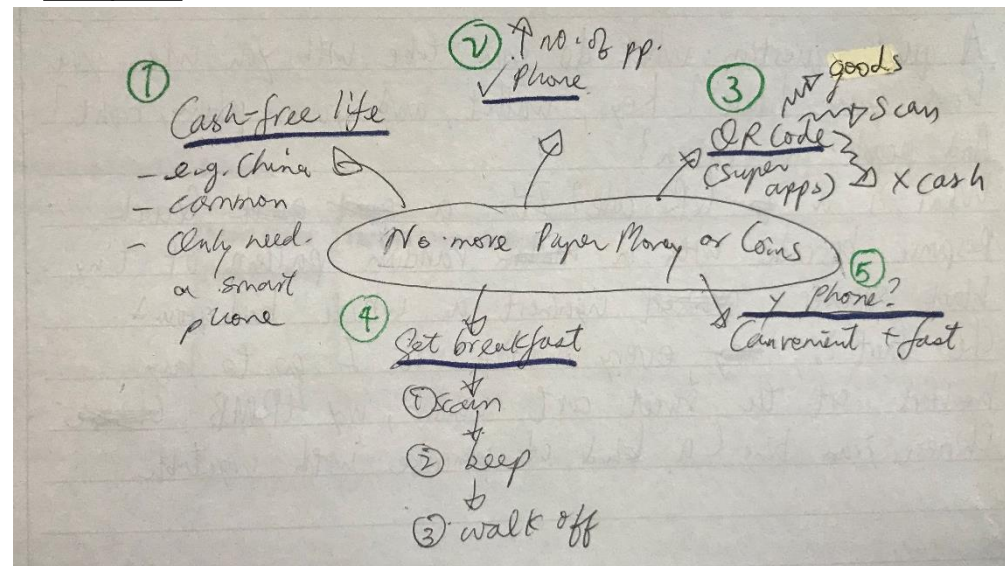 ①
Cash-free life
- e.g. China
- common
- Only need
a smart
phone
②
↑ no. of pp.
✓ Phone
③
QR Code
(super
apps)
goods
Scan
X cash
No more Paper Money or Coins
④
Get breakfast
① scan
② beep
③ walk off
⑤
y phone?
Convenient + fast